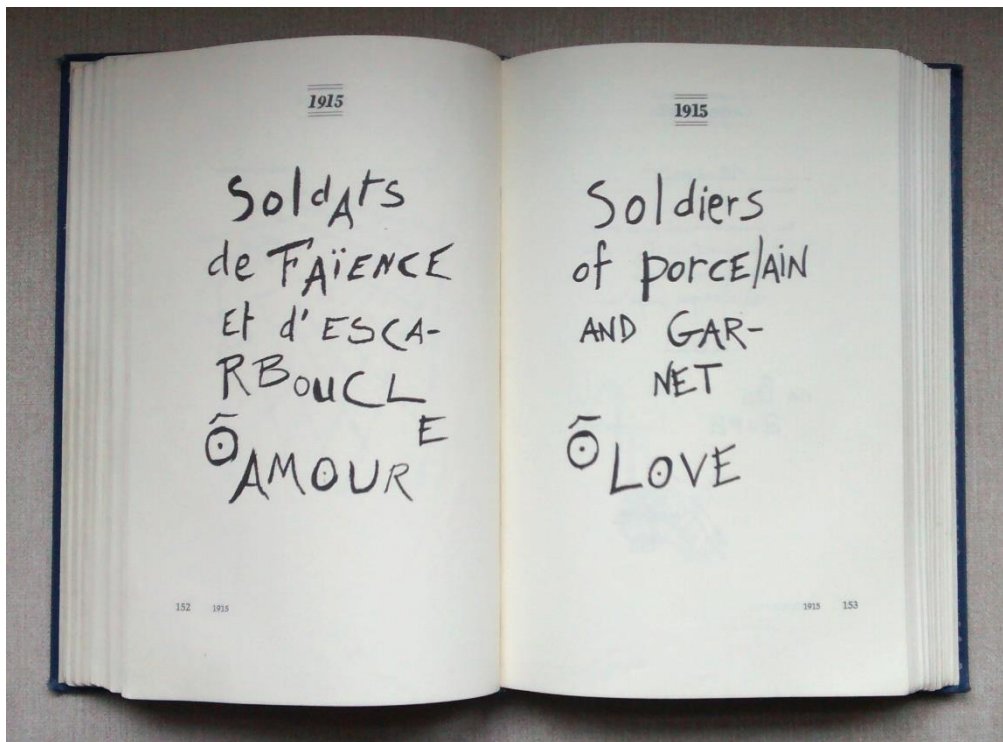 1915
SoldAts
de FAÏENCE
Et d'ESCA-
RBouCL
E
Õ AMOUR
152 1915
1915
Soldiers
of porcElAiN
AND GAR-
NET
Õ LOVE
1915 153